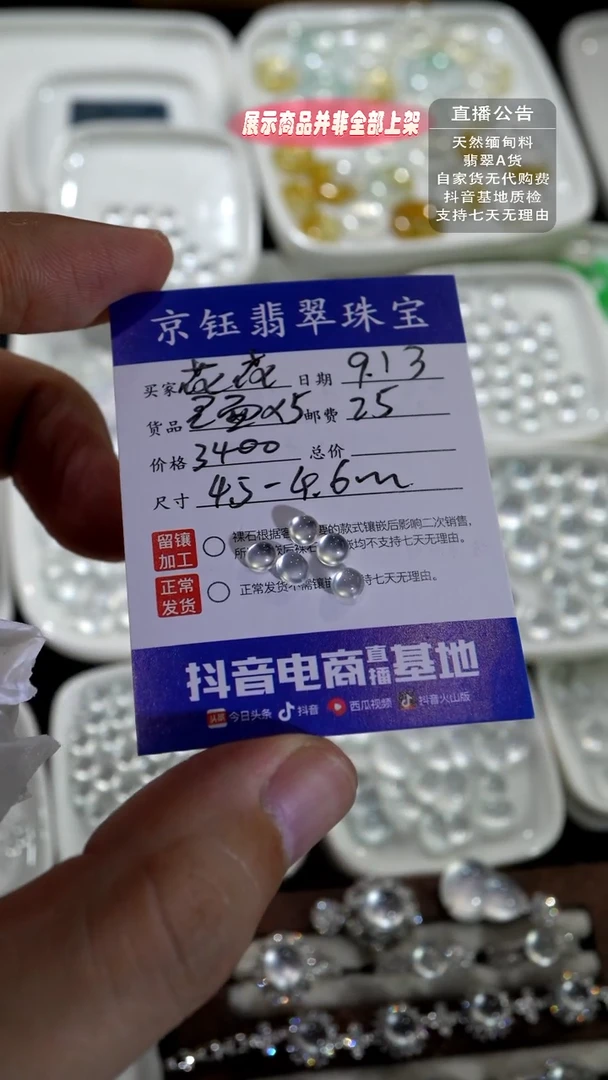 展示商品并非全部上架
直播公告
天然缅甸料
翡翠A货
自家货无代购费
抖音基地质检
支持七天无理由
京钰翡翠珠宝
买家 花花 日期 9.13
货品 蛋面x5 邮费 25
价格 3400 总价
尺寸 4.5-4.6m
留镶
加工
裸石根据客 理的款式镶嵌后影响二次销售,
所 嵌后裸石 均不支持七天无理由。
正常
发货
正常发货不需镶嵌 持七天无理由。
抖音电商直播基地
头条 今日头条 抖音 西瓜视频 抖音火山版